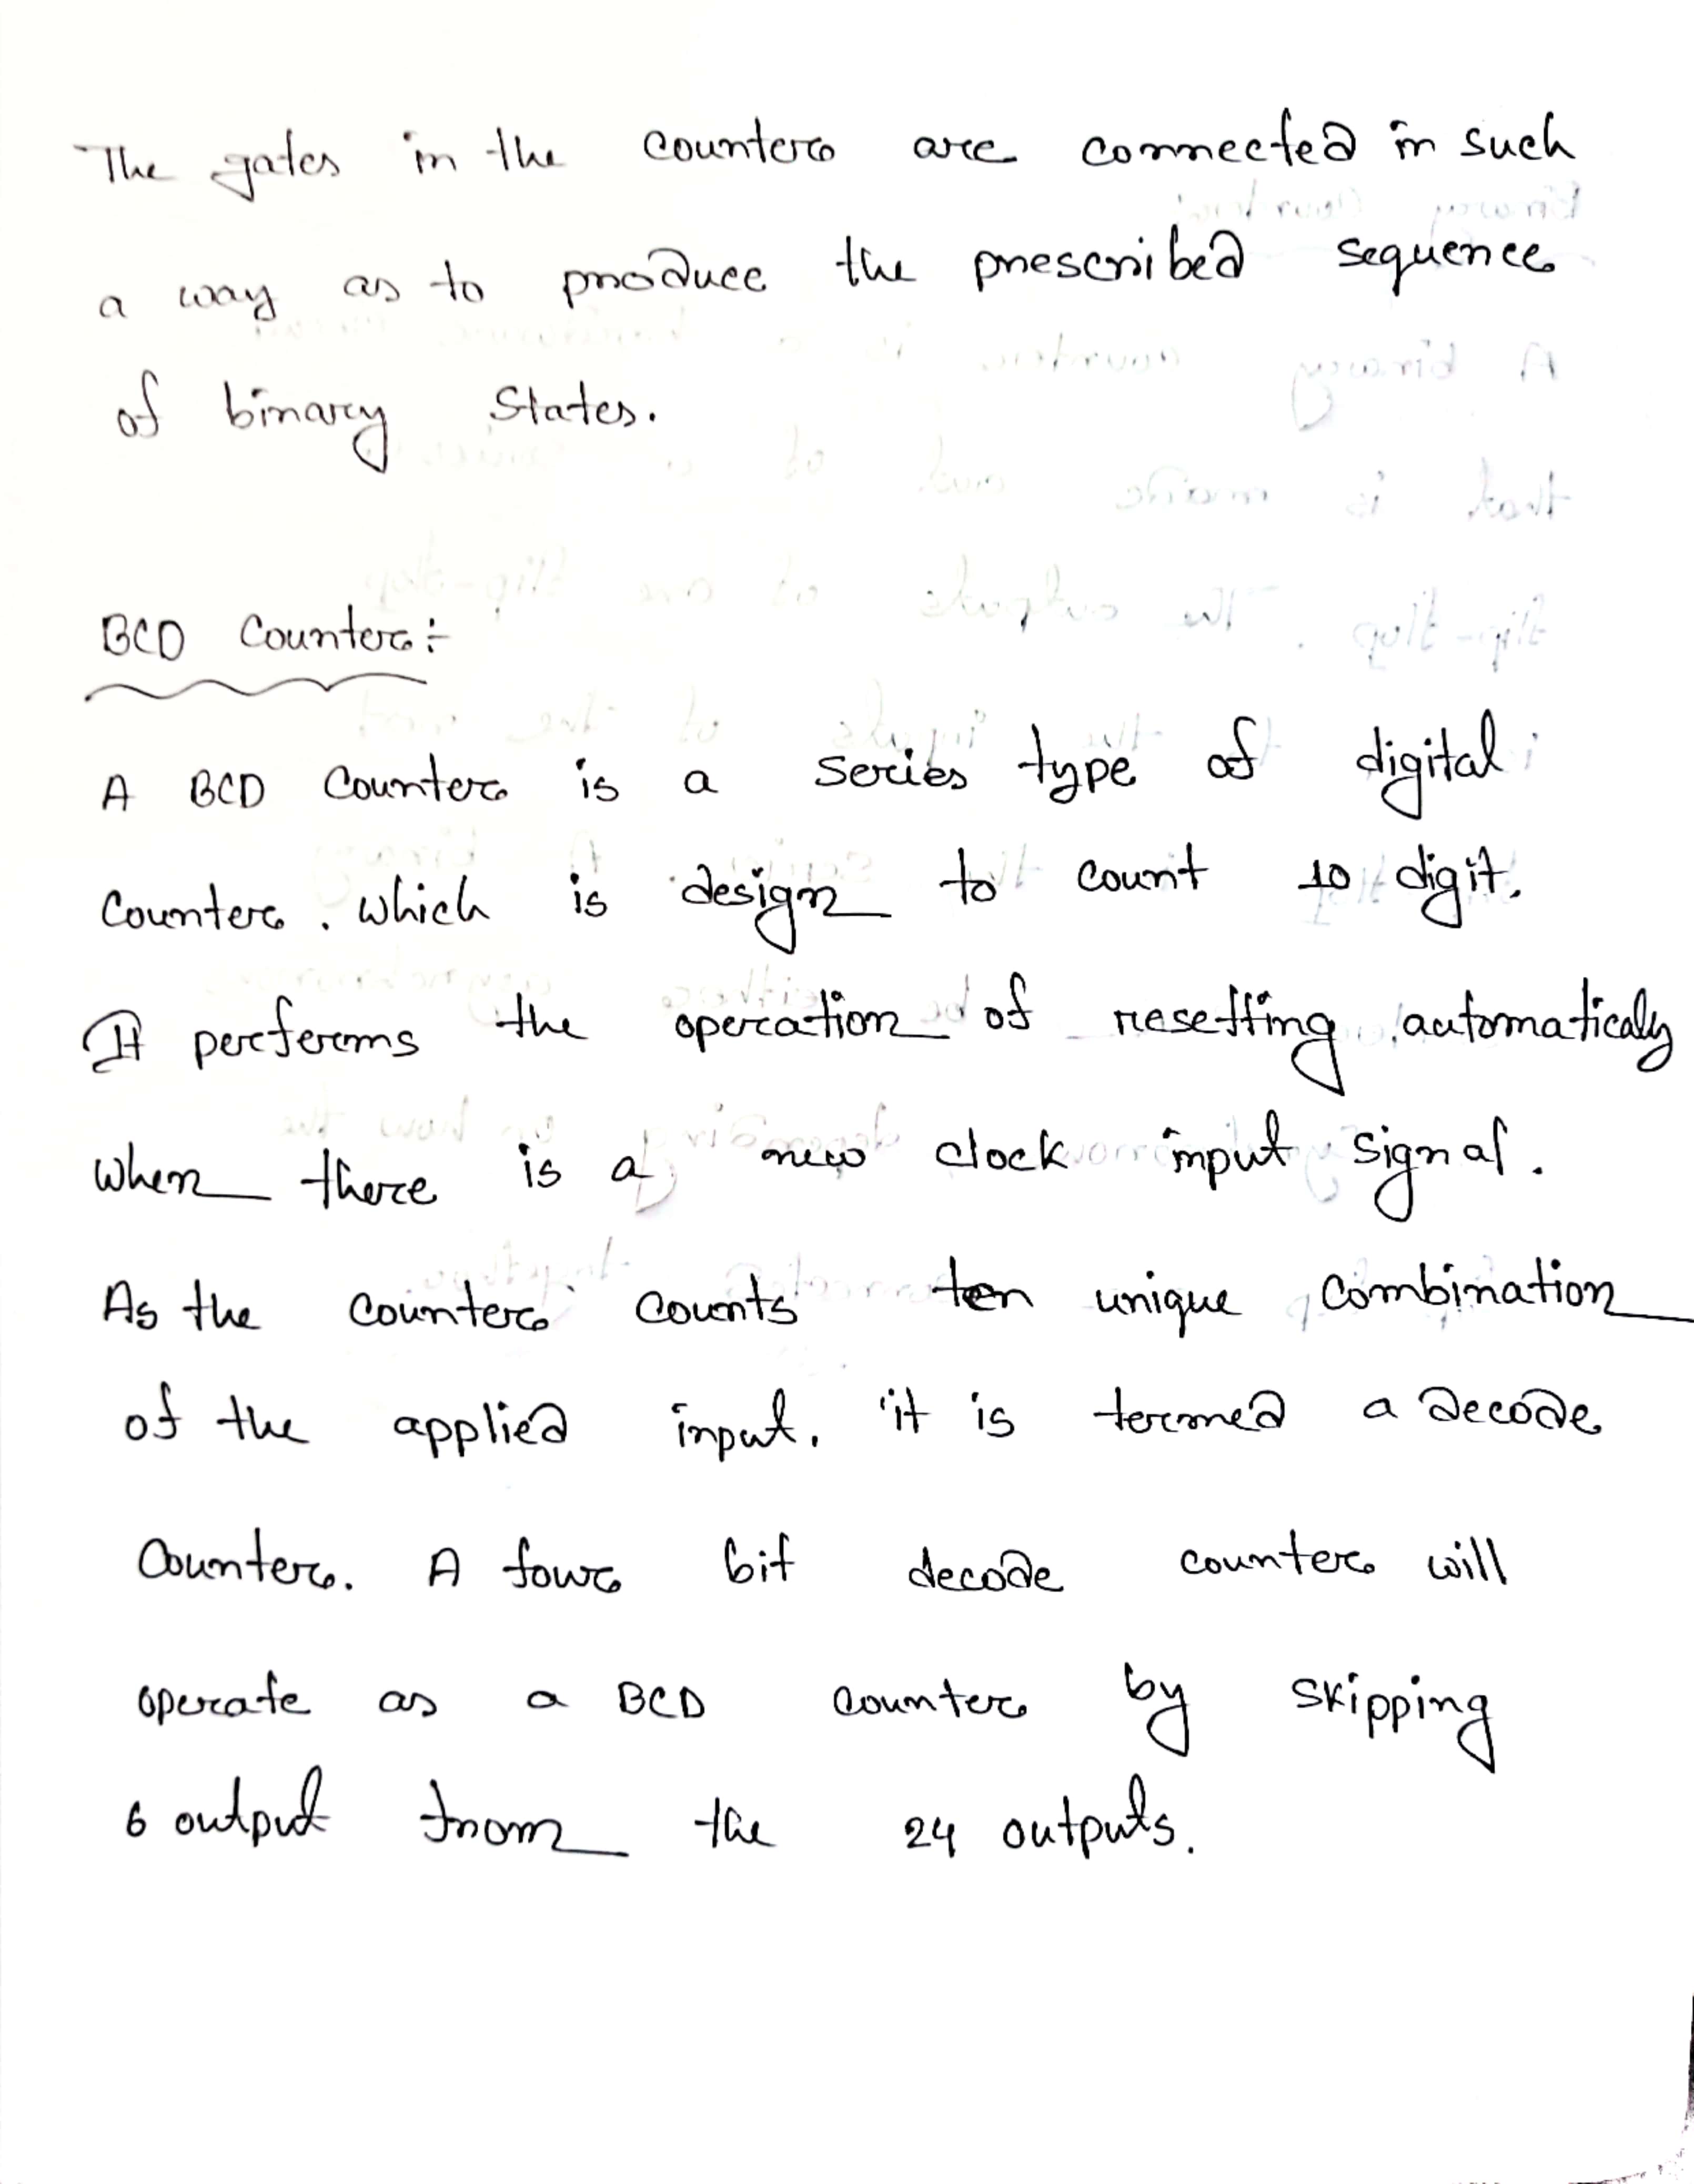 The gates in the counter are connected in such
a way as to produce the prescribed sequence
of binary states.
BCD Counter:-
A BCD Counter is a series type of digital
counter. which is design to count 10 digit.
It performs the operation of resetting automaticaly
when there is a new clock input signal.
As the counter counts ten unique combination
of the applied input. it is termed a decode
counter. A four bit decode counter will
operate as a BCD counter by skipping
6 output from the 24 outputs.